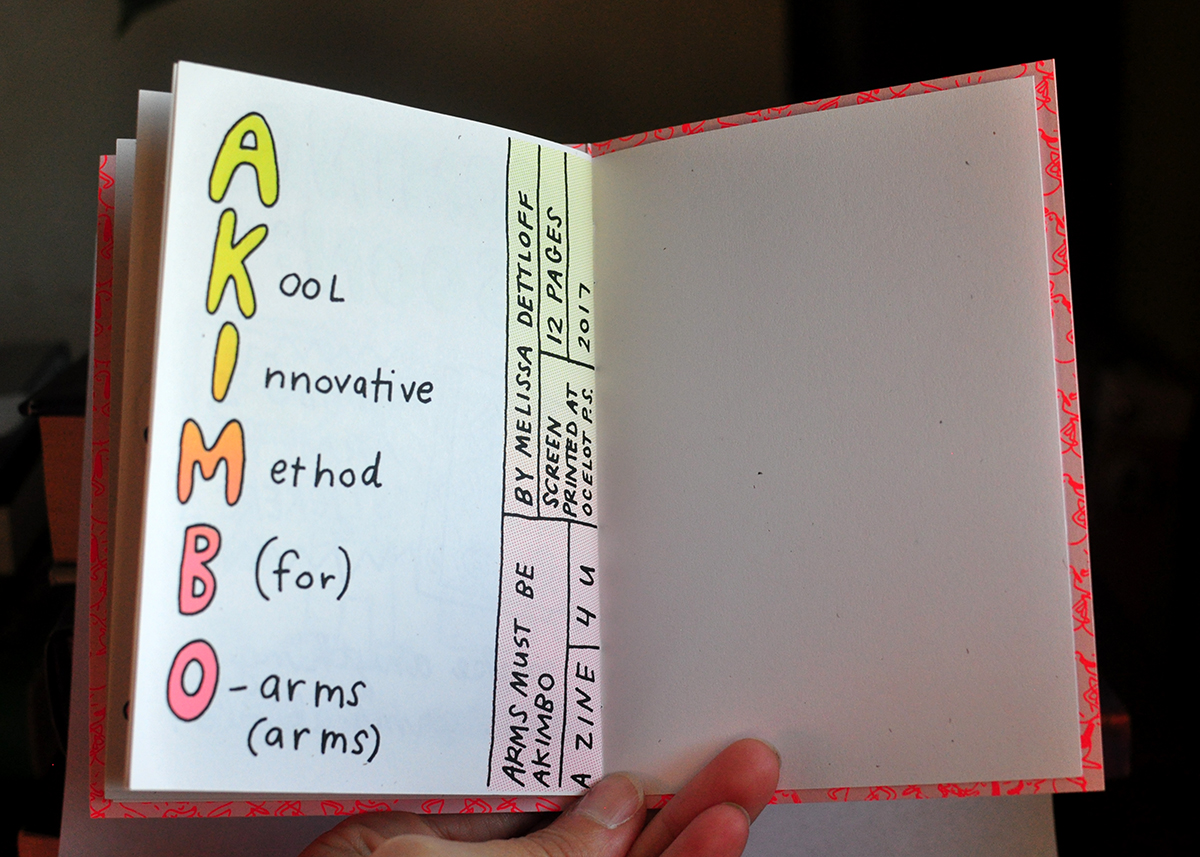 A
Kool
Innovative
Method
B (for)
O-arms
(arms)
ARMS MUST BE
AKIMBO
A ZINE 4 U
BY MELISSA DETTLOFF
SCREEN
PRINTED AT
OCELOT P.S.
12 PAGES
2017